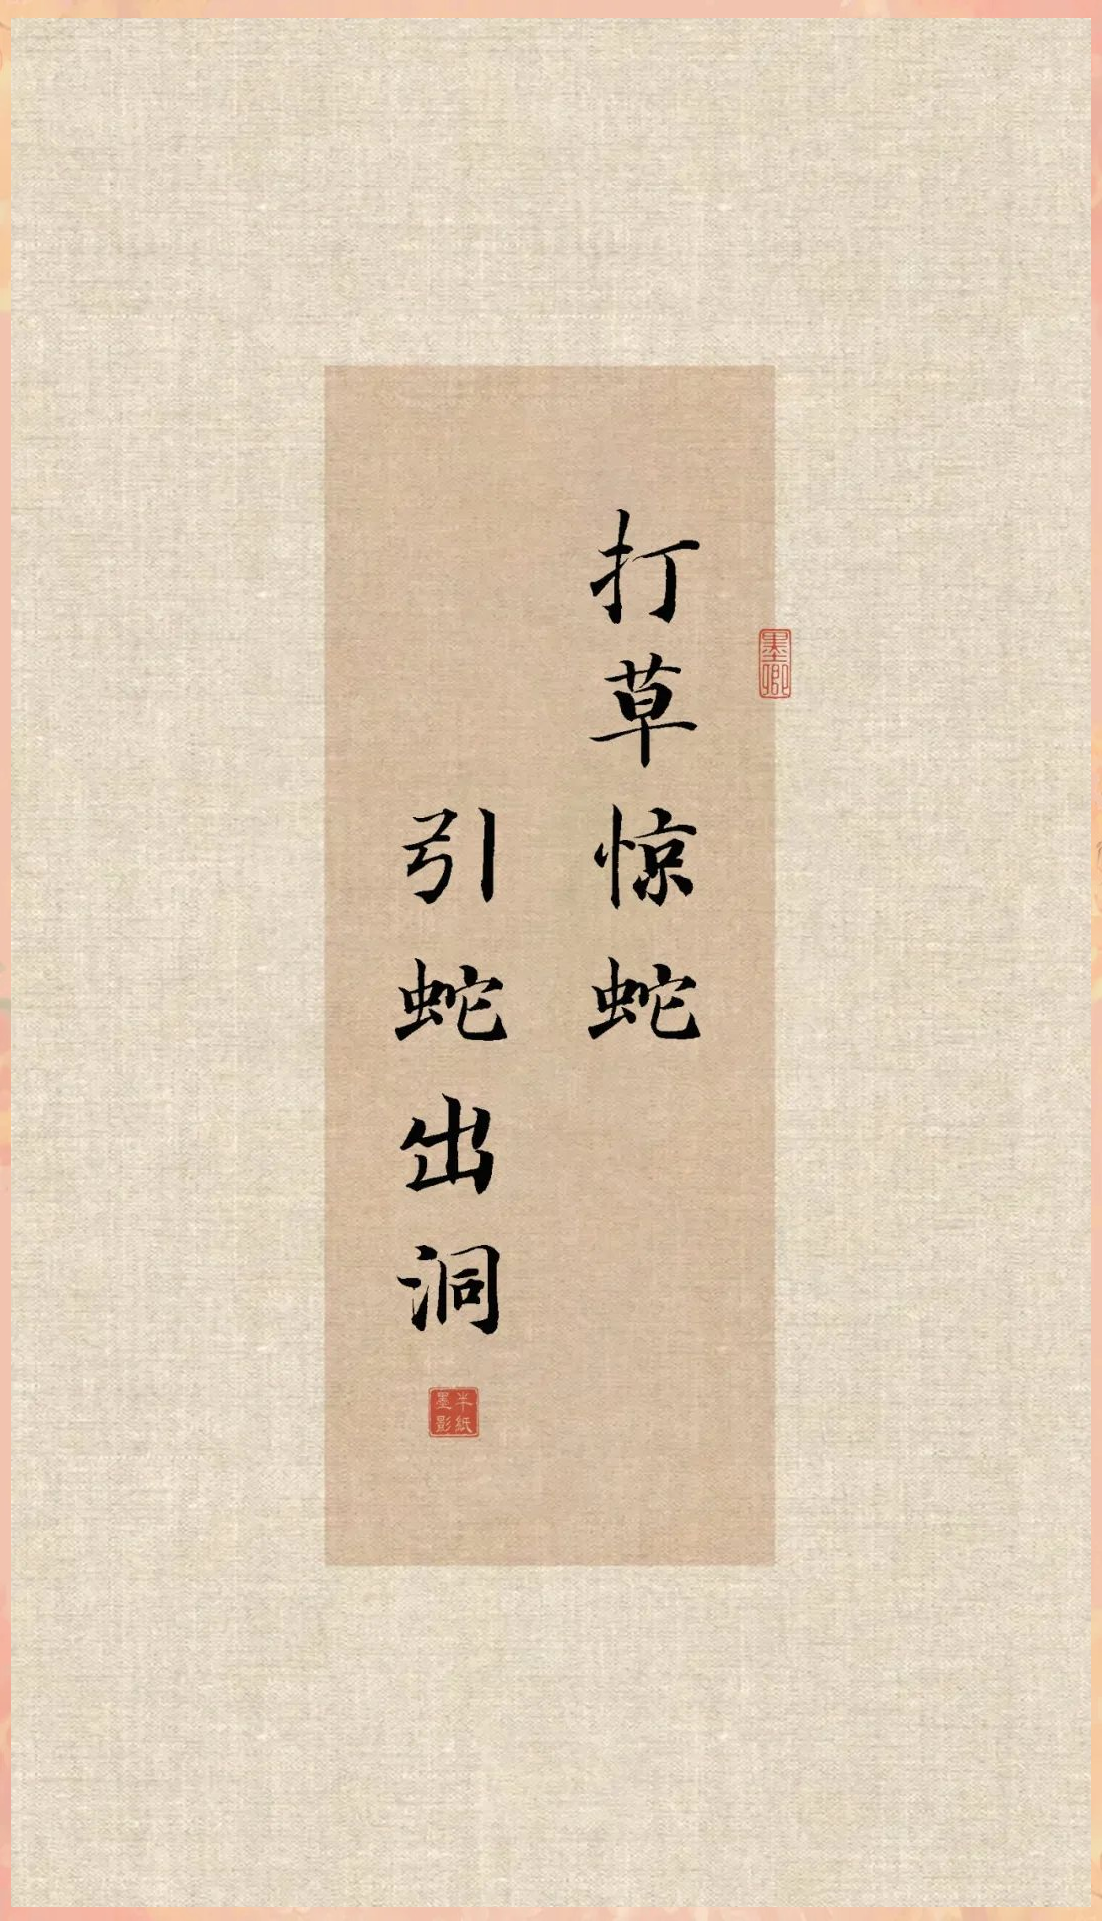 打草惊蛇
引蛇出洞
墨卿
半纸
墨影